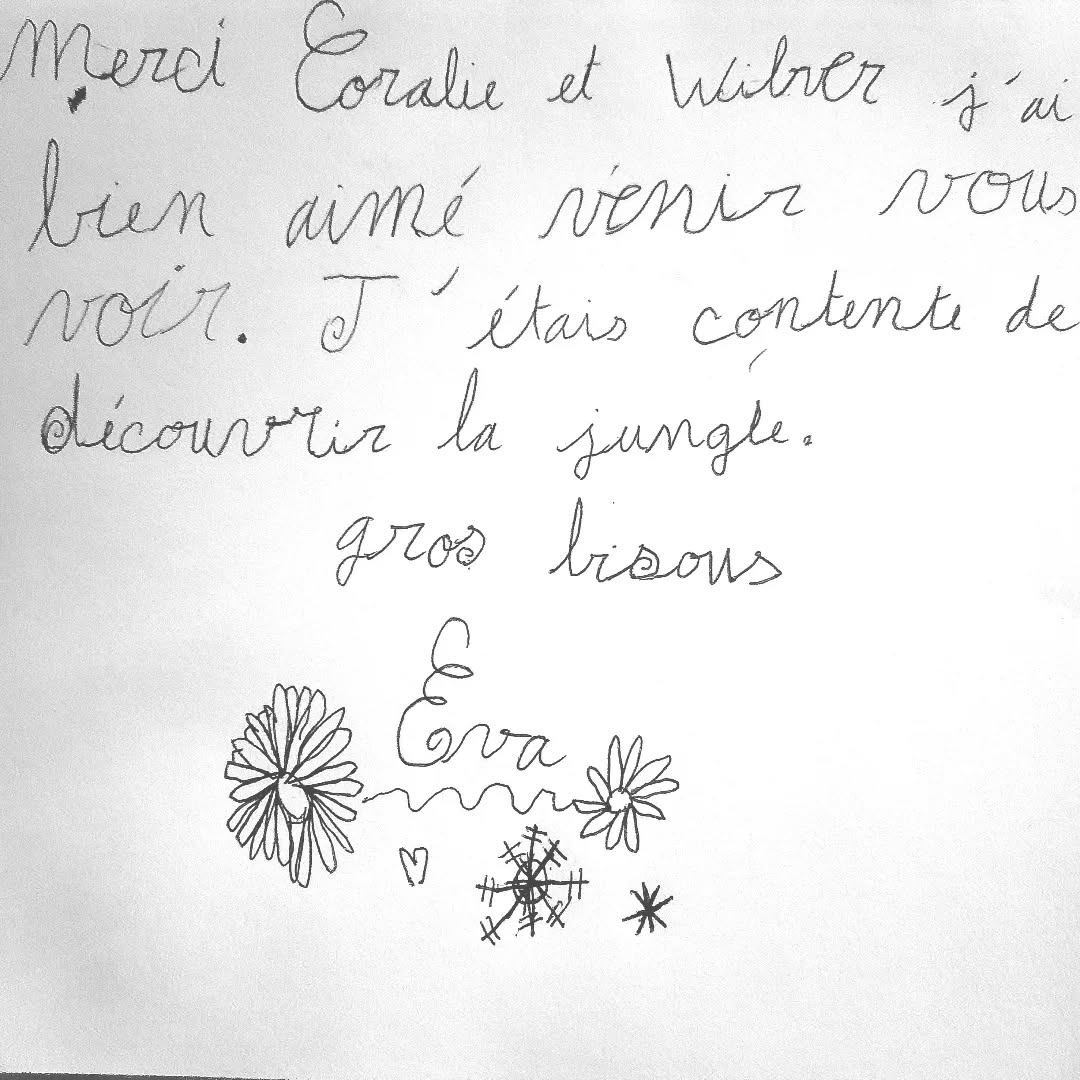 Merci Coralie et Wilver j'ai
bien aimé venir vous
voir. J'étais contente de
découvrir la jungle.
gros bisous
Eva